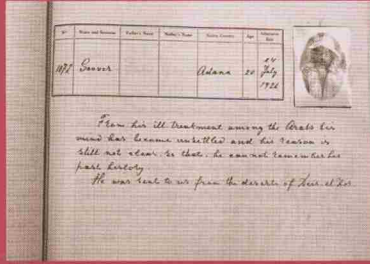 Nº Name and Surname Father's Name Mother's Name Native Country Age Admission Date
1072 Adana 20 14 July 1926
From his ill treatment among the Arabs his
mind has become unsettled and his reason is
still not clear. So that, he can not remember his
past history
He was sent to us from the deserts of Deir-el-Zor